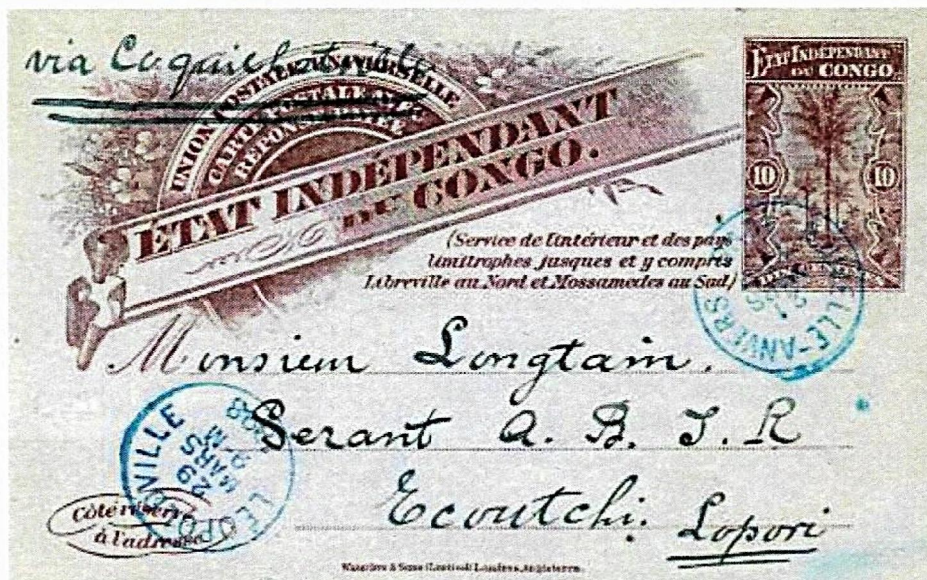 via Coquilhatville
UNION POSTALE UNIVERSELLE
CARTE POSTALE AVEC
RÉPONSE PAYÉE
ÉTAT INDÉPENDANT
DU CONGO.
ÉTAT INDÉPENDANT
DU CONGO
10 10
(Service de l'intérieur et des pays
limitrophes jusques et y compris
Libreville au Nord et Mossamedes au Sud)
Monsieur Longtain.
Serant A. B. I. R
Ecoutchi. Lopori
LEOPOLDVILLE
29
MARS
-M
VILLE-ANVERS
Côté réservé
à l'adresse
Waterlow & Sons Limited Londres, Angleterre.